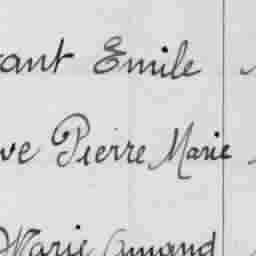 ant Emile
ve Pierre Marie
Marie Amand